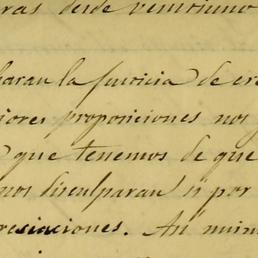 ras desde veintiuno
haran la justicia de cre
iores proposiciones nos
que tenemos de que
nos disculparan si por
reciaciones. Asi mism